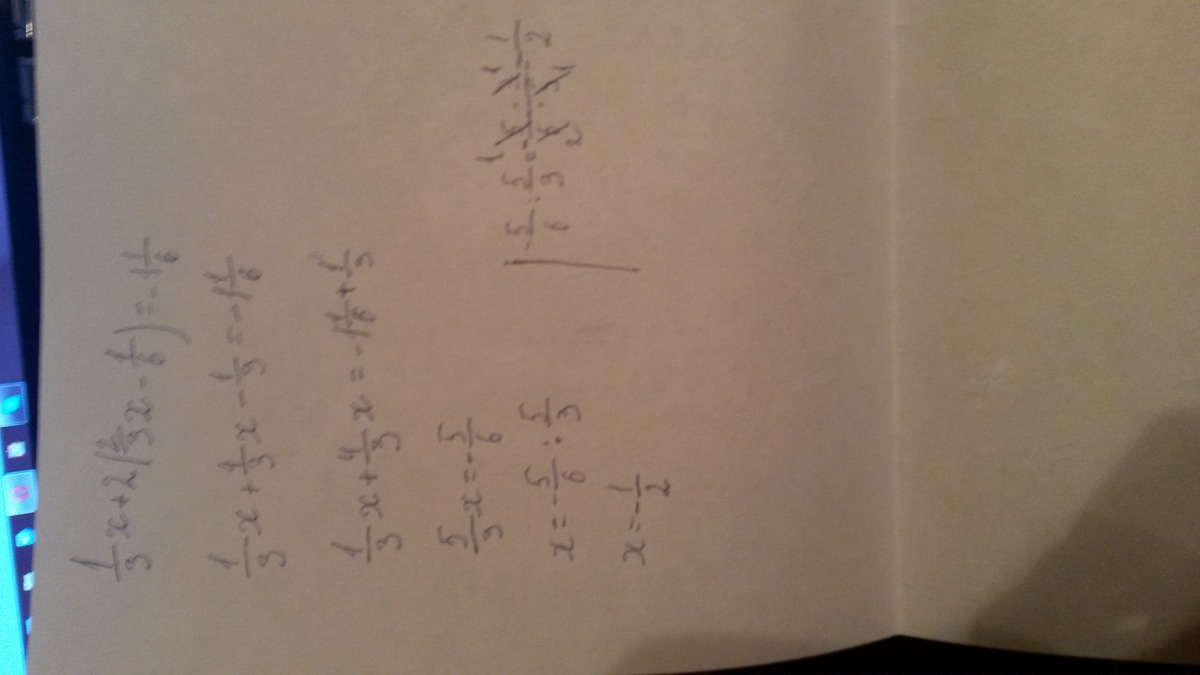 1/3 x + 2(2/3 x - 1/6) = -1 1/6
1/3 x + 4/3 x - 1/3 = -1 1/6
1/3 x + 4/3 x = -1 1/6 + 1/3
5/3 x = -5/6
x = -5/6 : 5/3
x = -1/2
-5/6 : 5/3 = - = -1/2